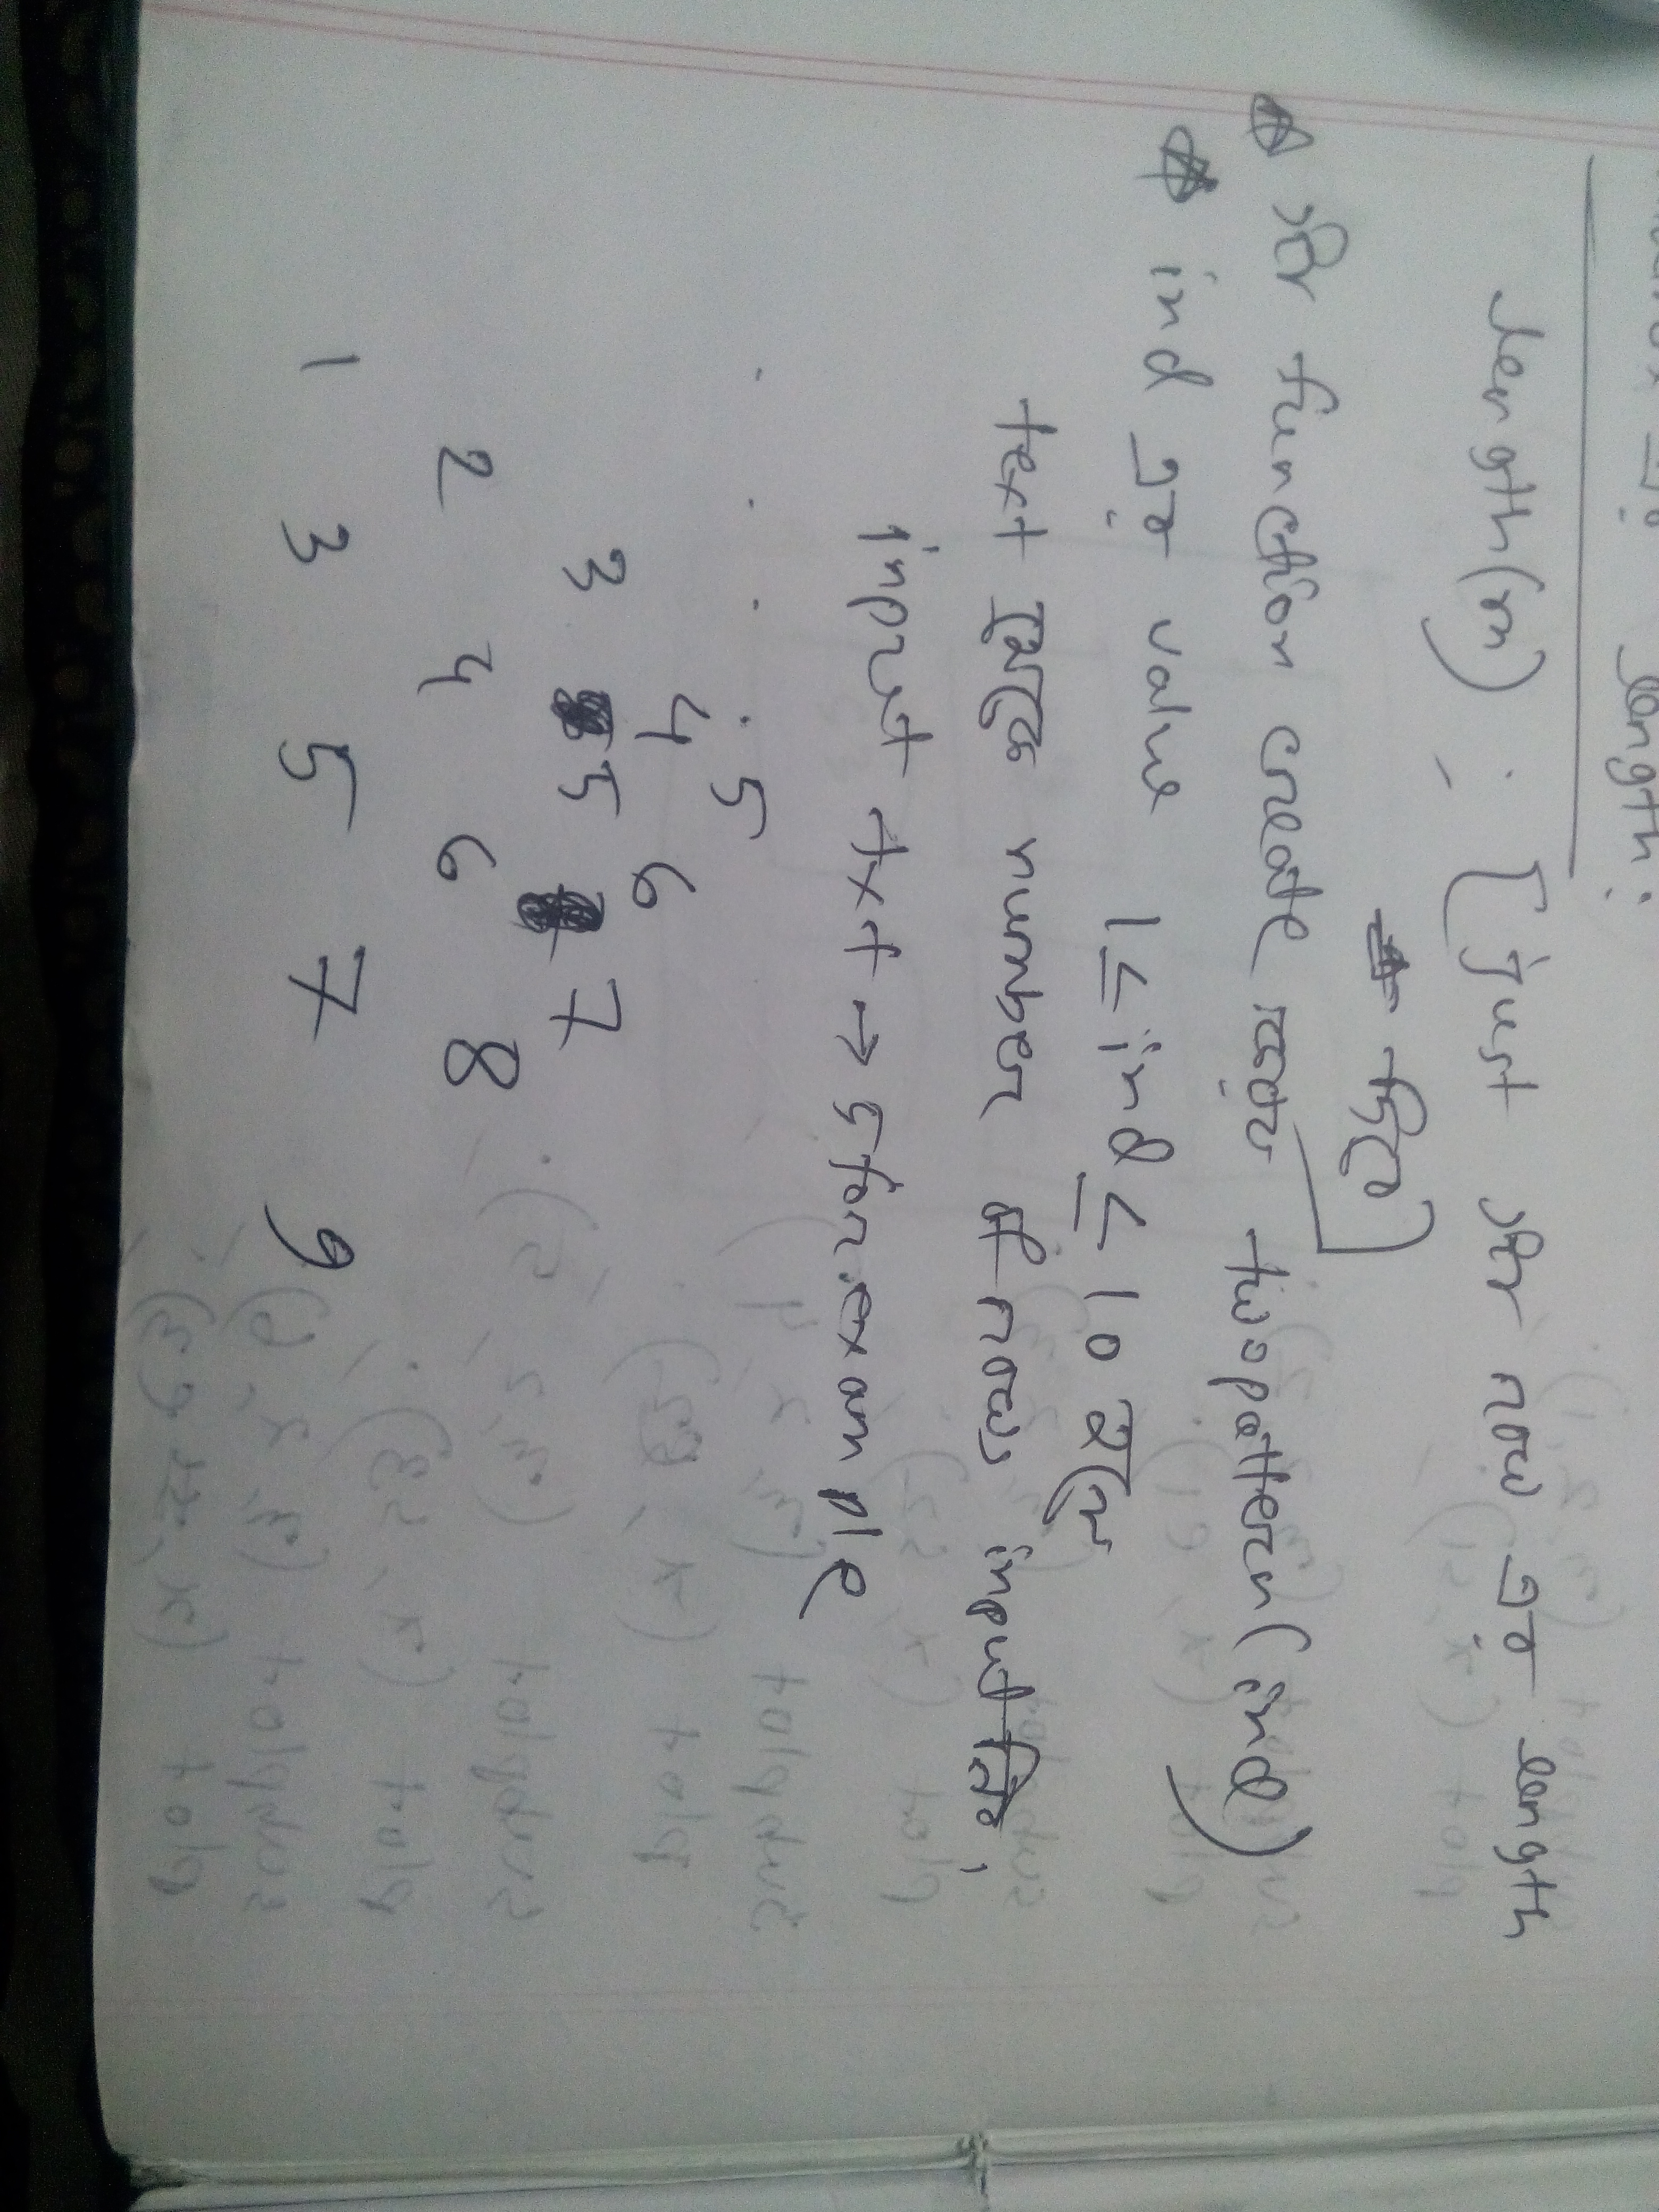 এর length:
length(m) ; [just row এর length
দিবে]
function create করব twopattern(ind)
ind এর value 1 ≤ ind ≤ 10 হলে
text থেকে number of rows input নিব,
input txt → 5 for example
. . . . 5
4 6
3 5 7
2 4 6 8
1 3 5 7 9